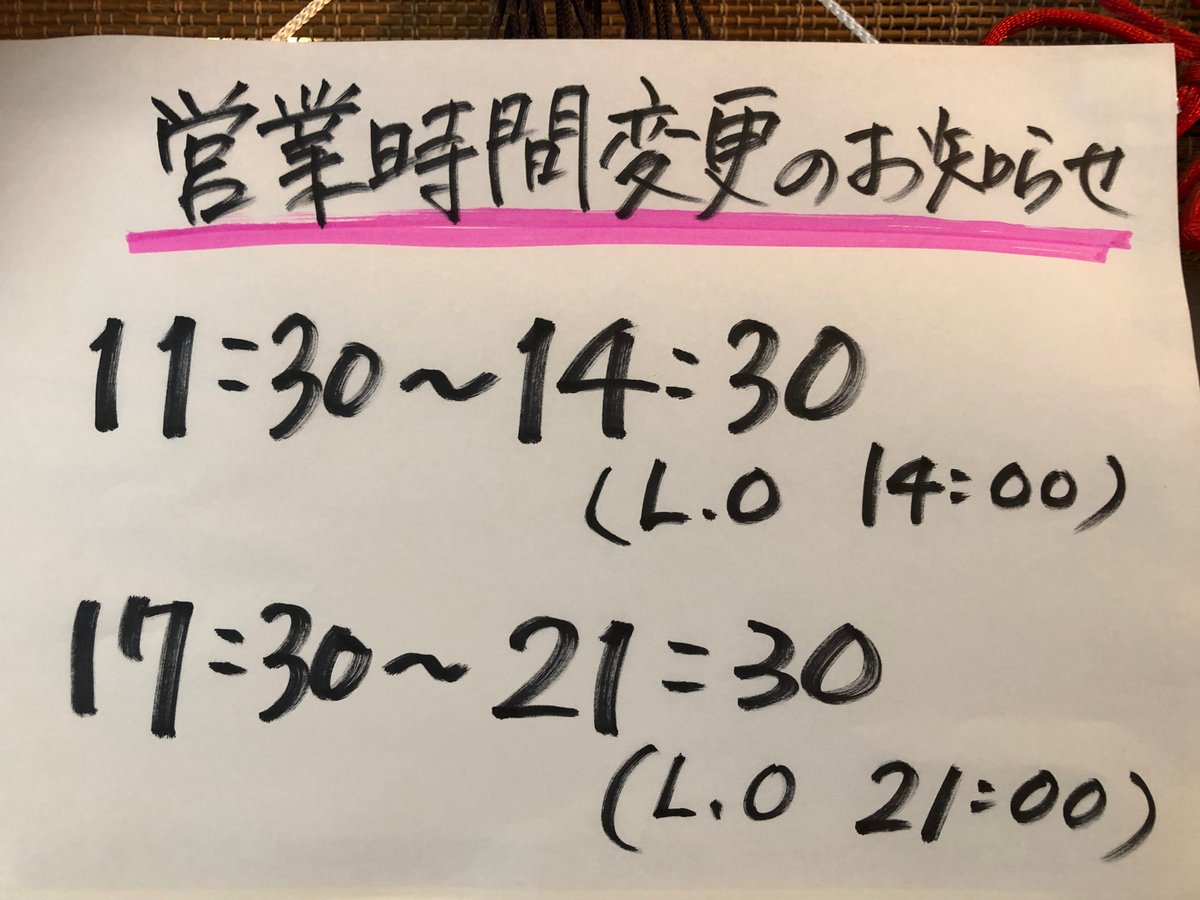 営業時間変更のお知らせ
11:30〜14:30
(L.O 14:00)
17:30〜21:30
(L.O 21:00)